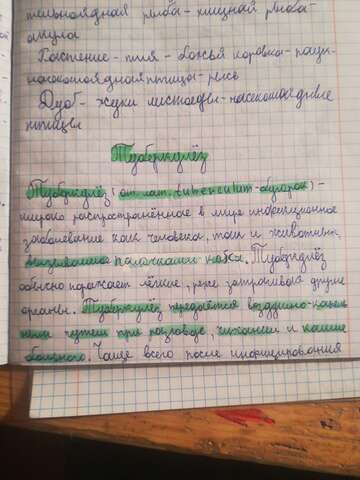 тельноядная рыба - хищная рыба -
акула
Растение - тля - божья коровка - паук -
насекомоядная птицы - рысь
Дуб - жуки листоеды - насекомоядные
птицы
Туберкулёз
Туберкулёз (от лат. tuberculum - бугорок) -
широко распространённое в мире инфекционное
заболевание как человека, так и животных,
вызываемое палочками коха. Туберкулёз
обычно поражает лёгкие, реже затрагивая другие
органы. Туберкулёз передаётся воздушно-капель
ным путем при разговоре, чихании и кашле
больного. Чаще всего после инфицирования